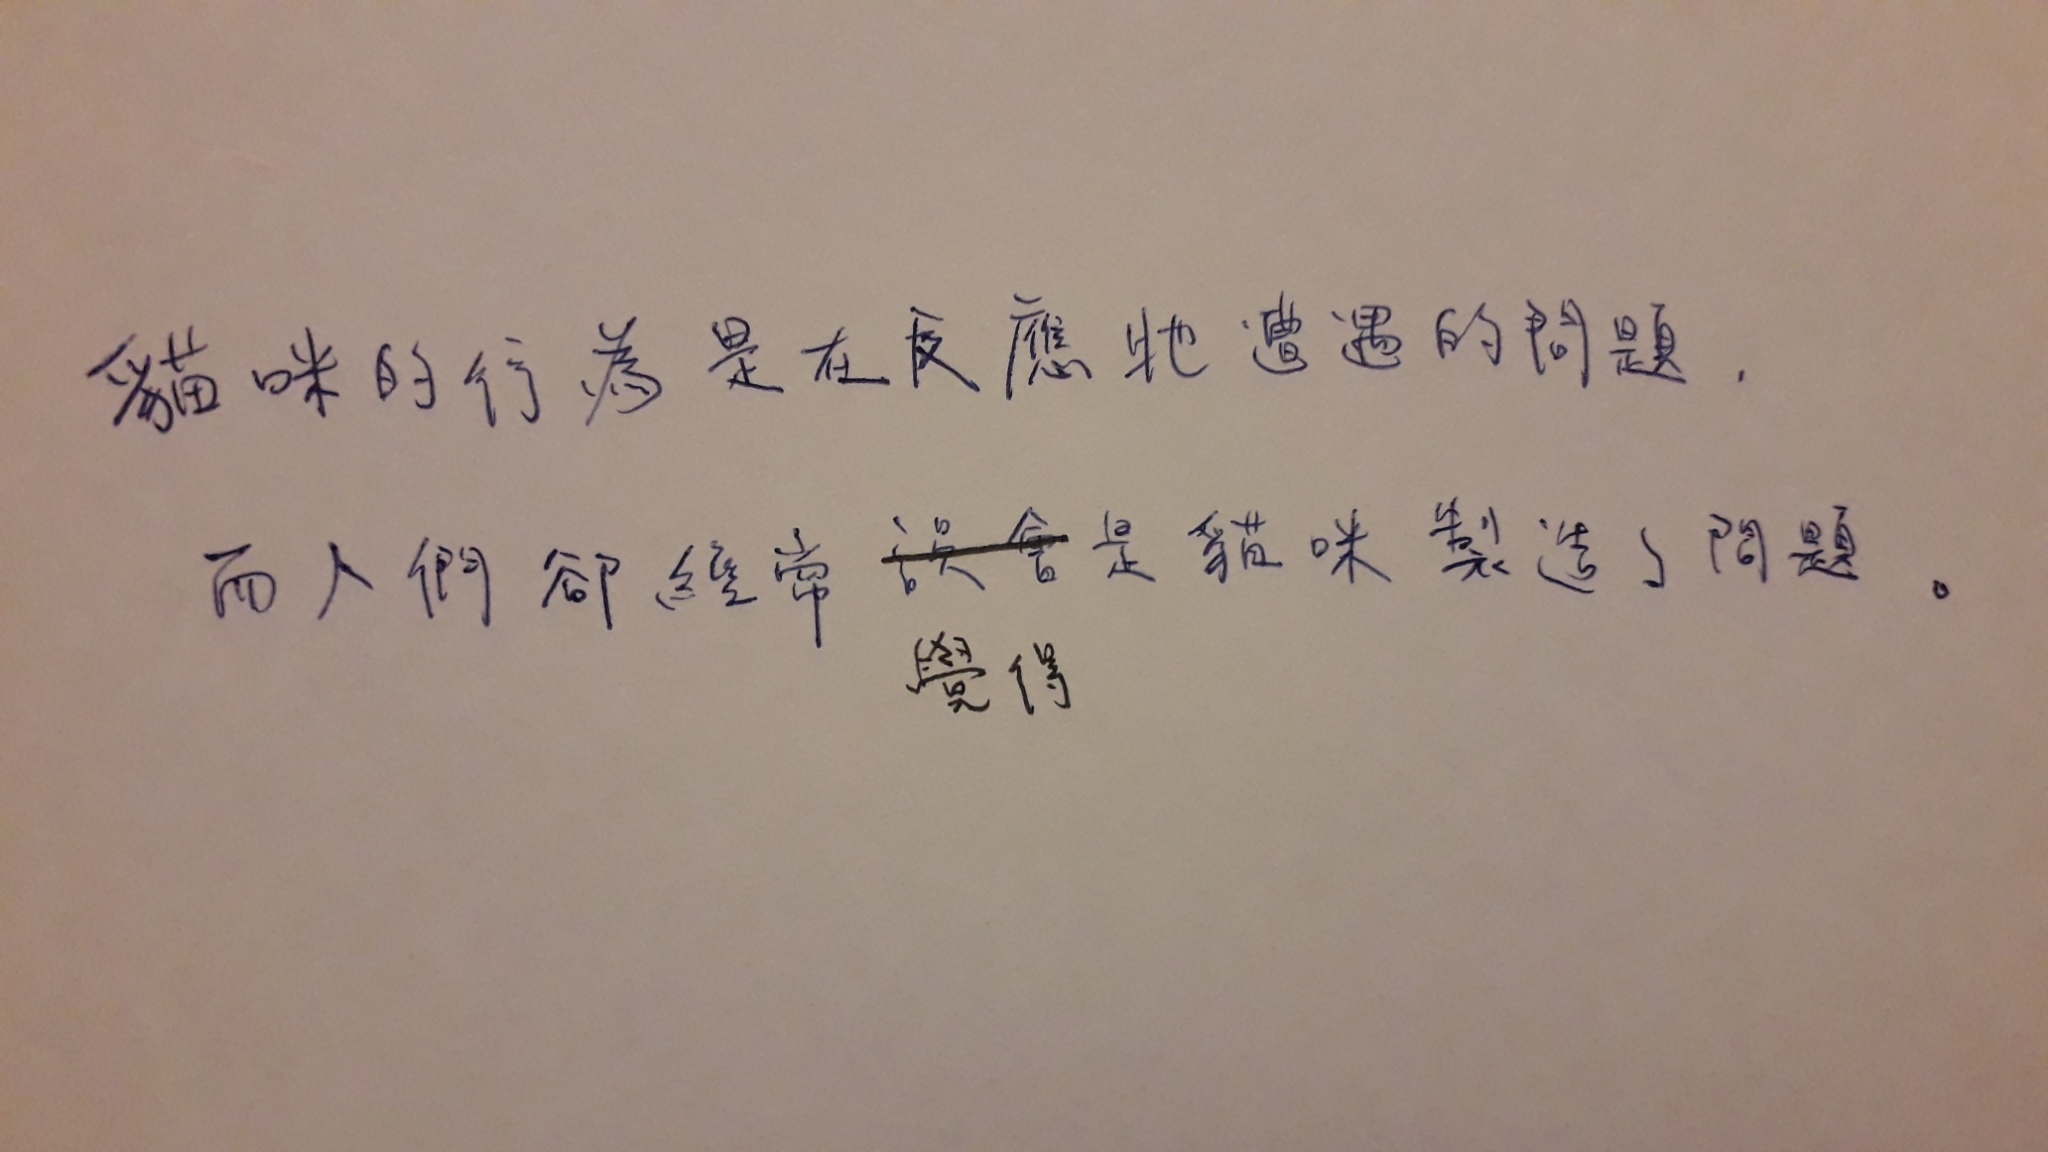 貓咪的行為是在反應牠遭遇的問題,
而人們卻經常誤會是貓咪製造了問題。
覺得